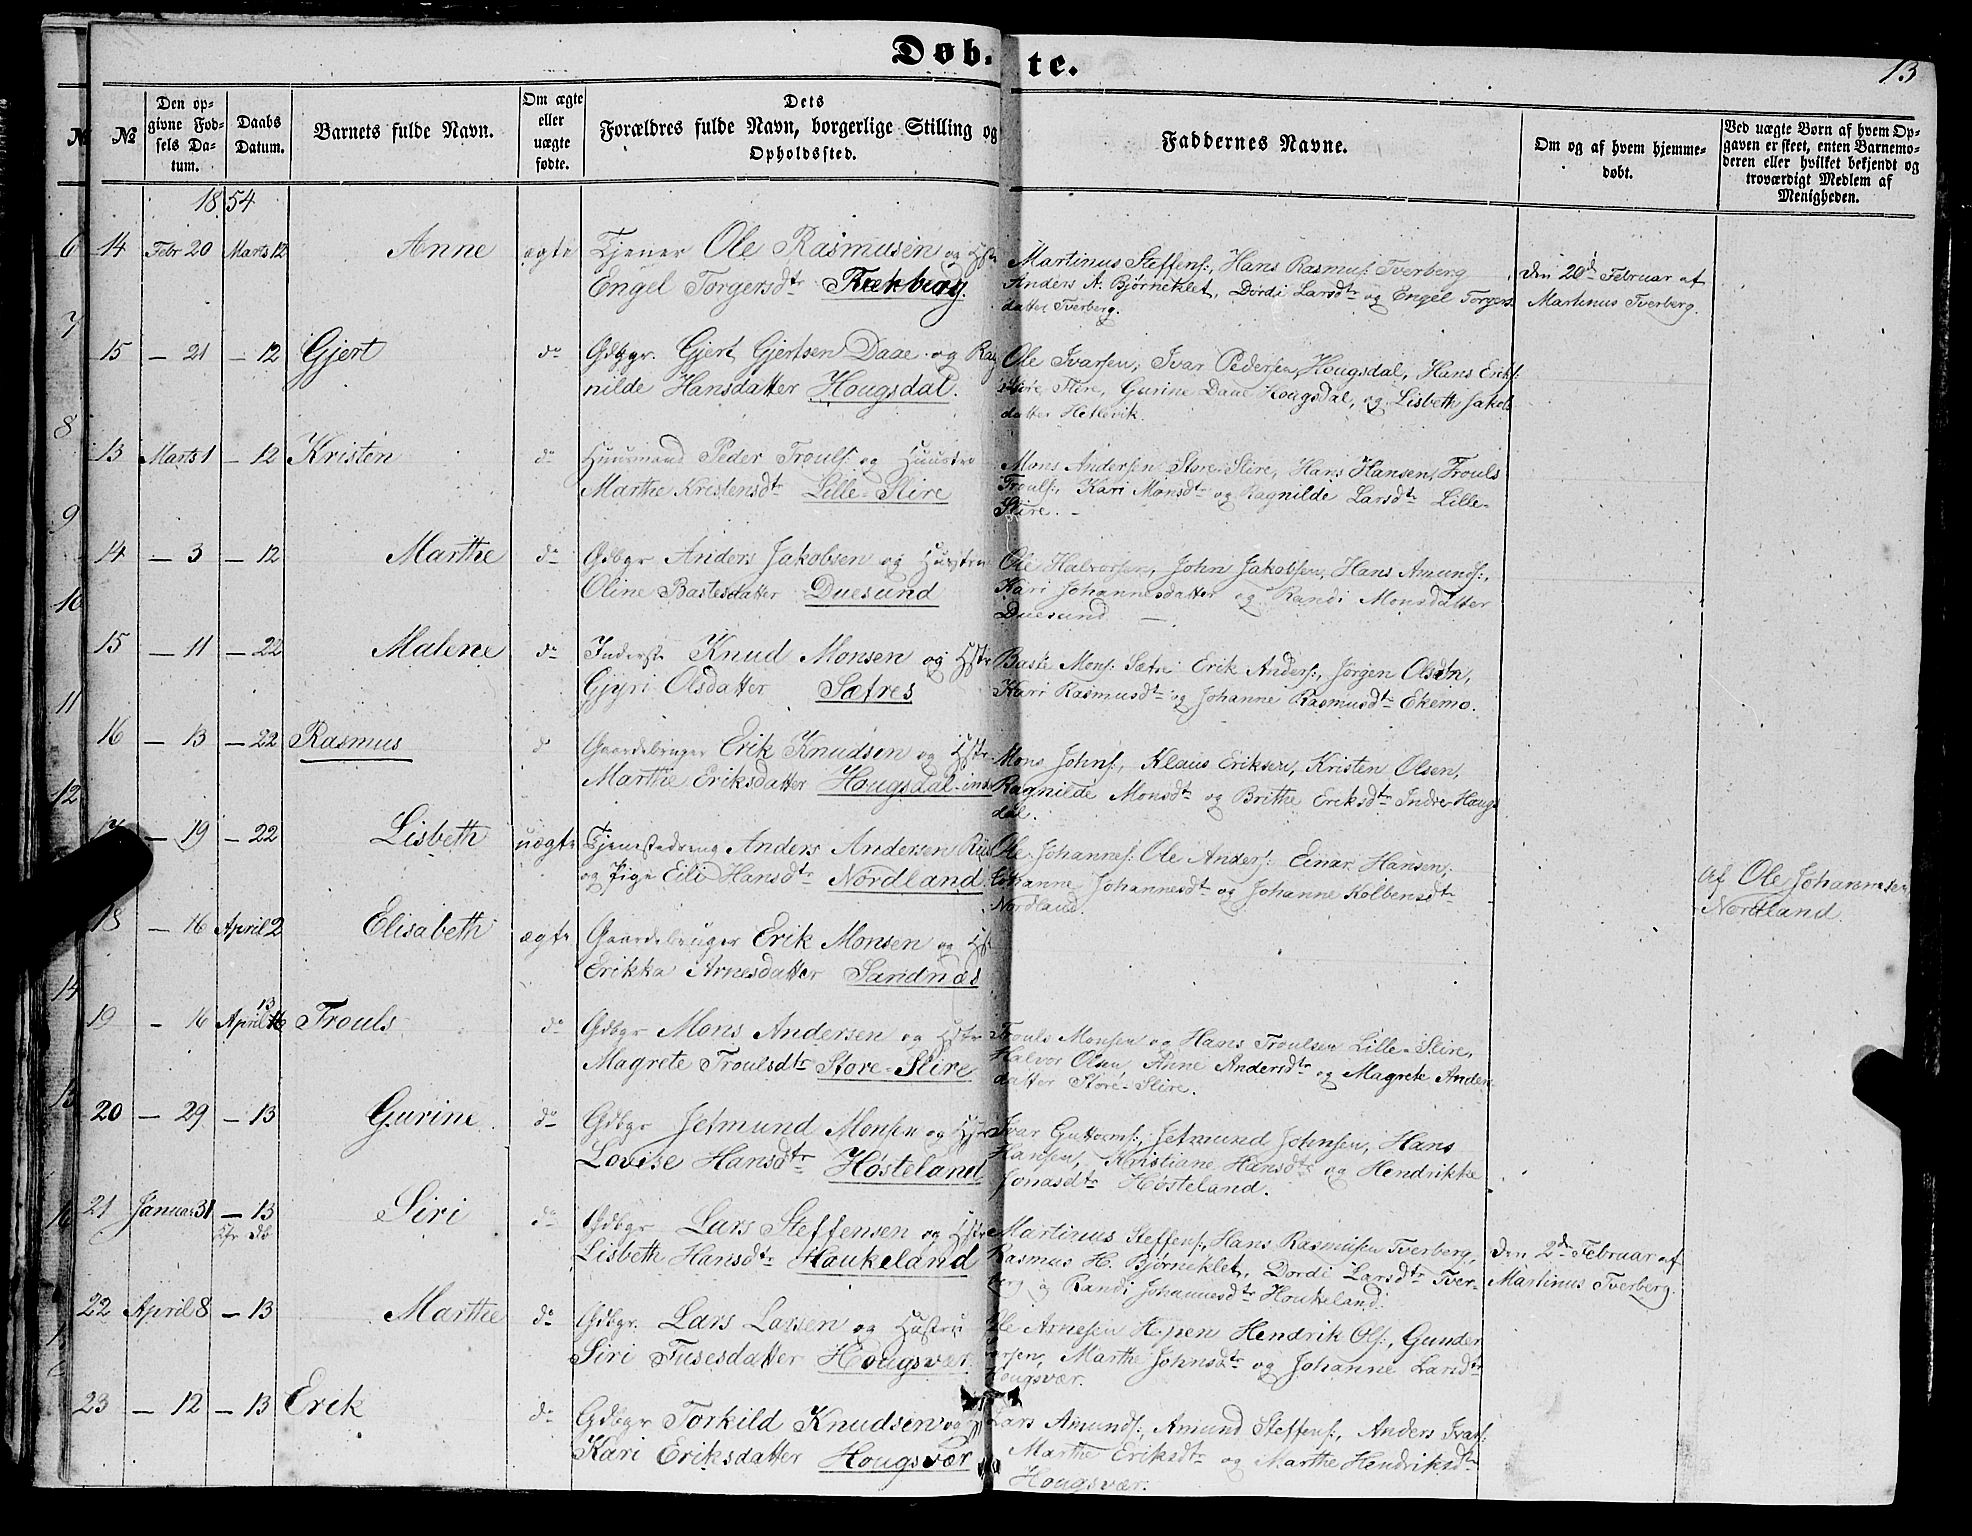 Døb- te.
13
№
Den op-
givne Fød-
sels Da-
tum.
Daabs
Datum.
Barnets fulde Navn.
Om ægte
eller
uægte
fødte.
Dets
Forældres fulde Navn, borgerlige Stilling og
Opholdssted.
Faddernes Navne.
Om og af hvem hjemme-
døbt.
Ved uægte Børn af hvem Op-
gaven er skeet, enten Barnemo-
deren eller hvilket bekjendt og
troværdigt Medlem af
Menigheden.
1854
14 Febr 20 Marts 12 Anne ægte Tjener Ole Rasmusen og Hstr
Engel Torgersdtr
Martinus Steffens:, Hans Rasmus: Tverberg
Anders A. Bjørneklet, Dordi Larsdtr og Engel Torgers
datter Tverberg.
Den 20de Februar af
Martinus Tverberg.
15 – 21 – 12 Gjert do Gdbgr. Gjert Gjertsen Daae og Rag
nilde Hansdatter Hougsdal.
Ole Ivarsen, Ivar Pedersen Hougsdal, Hans Eriks:
Slire, Gurine Daae Hougsdal, og Lisbeth Jakobs
datter Hetlevik.
13 Marts 1 – 12 Kristen do Huusmand Peder Trouls: og Huustru
Marthe Kristensdtr Lille-Slire
Mons Andersen Store-Slire, Hans Hansen, Trouls
Trouls:, Kari Monsdtr og Ragnilde Larsdtr Lille-
Slire. –
14 – 3 – 12 Marthe do Gdbgr Anders Jakobsen og Hustru
Oline Bastesdatter Duesund
Ole Halvorsen, John Jakobsen, Hans Amunds:,
Kari Johannesdatter og Randi Monsdatter
Duesund –
15 – 11 – 22 Malene do Inderst Knud Monsen og Hstr
Gjyri Olsdatter Sætres
Baste Mons: Sætre Erik Anders:, Jørgen Olsen,
Kari Rasmusdtr og Johanne Rasmusdtr Ekemo.
16 – 13 – 22 Rasmus d Gaardbruger Erik Knudsen og Hstr
Marthe Eriksdatter Hougsdal-ind
Mons Johns:, Klaus Eriksen, Kristen Olsen,
Ragnilde Monsdtr og Brithe Eriksdtr Indre Hougs
dal.
17 – 19 – 22 Lisbeth uægte Tjenestedreng Anders Andersen
og Pige Eili Hansdtr Nordland
Ole Johannes: Ole Anders: Einar Hansen,
Johanne Johannesdtr og Johanne Kolbensdtr
Nordland.
Af Ole Johannesen
Nordland
18 – 16 April 2 Elisabeth ægte Gaardbruger Erik Monsen og Hst
Erikka Arnesdatter Sandnæs
13
19 – 16 April 16 Trouls do Gdbgr Mons Andersen og Hstr
Magrete Troulsdtr Store-Slire
Trouls Monsen og Hans Troulsen Lille-Slire,
Halvor Olsen, Anne Andersdtr og Magrete Anders
datter Store-Slire.
20 – 29 – 13 Gurine do Gdbgr Jetmund Monsen og Hstr
Lovise Hansdtr Høsteland
Ivar Guttorms:, Jetmund Johnsen, Hans
Hansen, Kristiane Hansdtr og Hendrikke
Jonasdtr Høsteland.
21 Januar 31 – 13 Siri do Gdbgr Lars Steffensen og Hstr
Lisbeth Hansdtr Haukeland
Martinus Steffens:, Hans Rasmusen Tverberg,
Rasmus H. Bjørneklet, Dordi Larsdtr Tver-
berg og Randi Johannesdtr Houkeland.
Den 2de Februar af
Martinus Tverberg.
22 April 8 – 13 Marthe do Gdbgr. Lars Larsen og Hustru
Siri Tusesdatter Hougsvær.
Ole Arnesen Hendrik Ols:, Gunder
Marthe Johnsdtr og Johanne Larsdtr
Hougsvær.
23 – 12 – 13 Erik do Gdbgr Torkild Knudsen og
Kari Eriksdatter Hougsvær
Lars Amunds:, Amund Steffens:, Anders Ivars:
Marthe Eriksdtr og Marthe Hendriksdtr
Hougsvær.